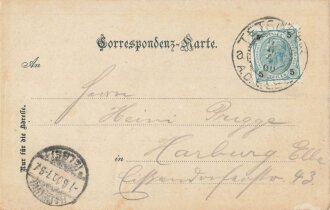 Correspondenz-Karte.
An
Herrn
Heini Prigge
in Harburg Elbe
Eissendorferstr. 43.
Nur für die Adresse.
TETSCHEN
5 5